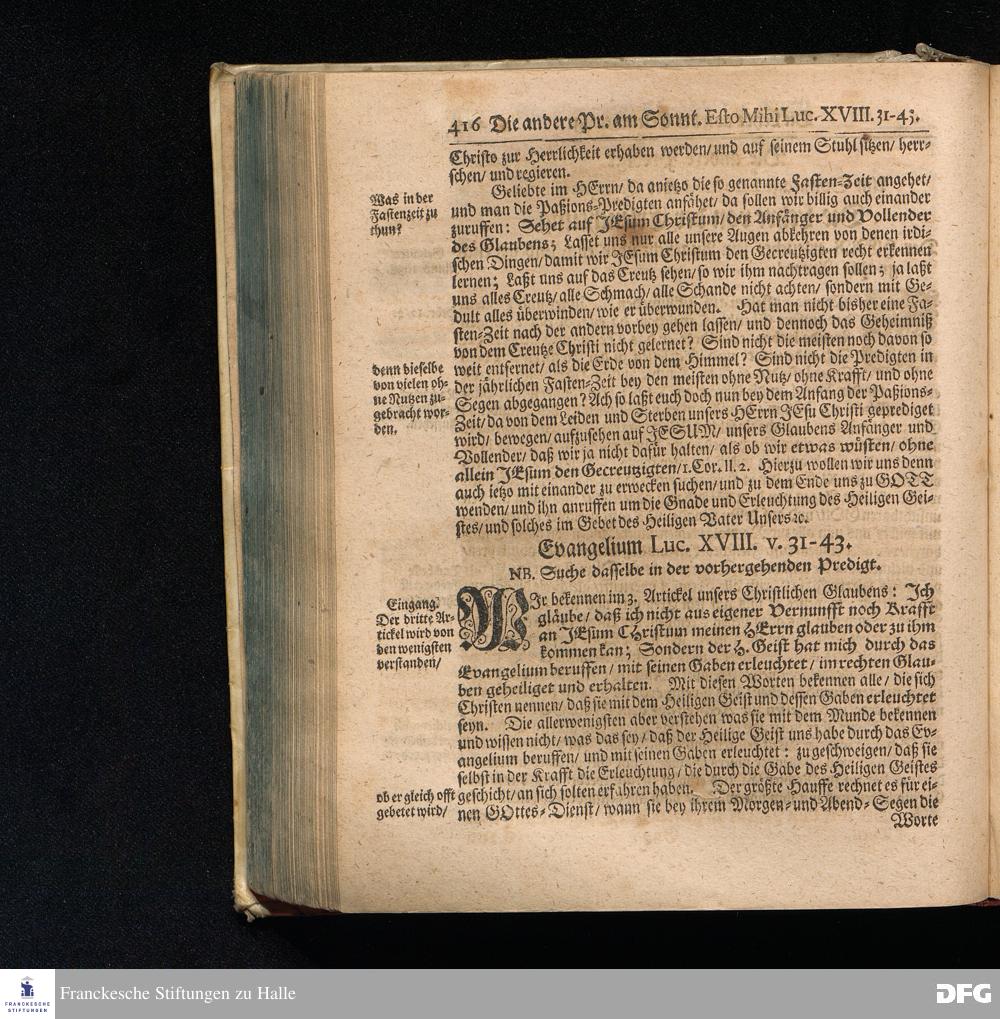 416 Die andere Pr. am Sonnt. Esto Mihi Luc. XVIII. 31-43.
Christo zur Herrlichkeit erhaben werden/ und auf seinem Stuhl sitzen/ herr-
schen/ und regieren.
Was in der
Fastenzeit zu
thun?
Geliebte im HErrn/ da anietzo die so genannte Fasten-Zeit angehet/
und man die Paßions-Predigten anfähet/ da sollen wir billig auch einander
zuruffen: Sehet auf JEsum Christum/ den Anfänger und Vollender
des Glaubens; Lasset uns nur alle unsere Augen abkehren von denen irdi-
schen Dingen/ damit wir JEsum Christum den Gecreutzigten recht erkennen
lernen; Laßt uns auf das Creutz sehen/ so wir ihm nachtragen sollen; ja laßt
uns alles Creutz/ alle Schmach/ alle Schande nicht achten/ sondern mit Ge-
dult alles überwinden/ wie er überwunden. Hat man nicht bisher eine Fa-
sten-Zeit nach der andern vorbey gehen lassen/ und dennoch das Geheimniß
von dem Creutze Christi nicht gelernet? Sind nicht die meisten noch davon so
weit entfernet/ als die Erde von dem Himmel? Sind nicht die Predigten in
der jährlichen Fasten-Zeit bey den meisten ohne Nutz/ ohne Krafft/ und ohne
Segen abgegangen? Ach so laßt euch doch nun bey dem Anfang der Paßions-
Zeit/ da von dem Leiden und Sterben unsers HErrn JEsu Christi geprediget
wird/ bewegen/ aufzusehen auf JESUM/ unsers Glaubens Anfänger und
Vollender/ daß wir ja nicht dafür halten/ als ob wir etwas wüsten/ ohne
allein JEsum den Gecreutzigten/ 1. Cor. II. 2. Hierzu wollen wir uns denn
auch ietzo mit einander zu erwecken suchen/ und zu dem Ende uns zu GOTT
wenden/ und ihn anruffen um die Gnade und Erleuchtung des Heiligen Gei-
stes/ und solches im Gebet des Heiligen Vater Unsers ꝛc.
denn dieselbe
von vielen oh-
ne Nutzen zu-
gebracht wor-
den.
Evangelium Luc. XVIII. v. 31-43.
NB. Suche dasselbe in der vorhergehenden Predigt.
Eingang.
Der dritte Ar-
tickel wird von
den wenigsten
verstanden/
WJr bekennen im 3. Artickel unsers Christlichen Glaubens: Ich
gläube/ daß ich nicht aus eigener Vernunfft noch Krafft
an JEsum CHristum meinen HErrn glauben oder zu ihm
kommen kan; Sondern der H. Geist hat mich durch das
Evangelium beruffen/ mit seinen Gaben erleuchtet/ im rechten Glau-
ben geheiliget und erhalten. Mit diesen Worten bekennen alle/ die sich
Christen nennen/ daß sie mit dem Heiligen Geist und dessen Gaben erleuchtet
seyn. Die allerwenigsten aber verstehen was sie mit dem Munde bekennen
und wissen nicht/ was das sey/ daß der Heilige Geist uns habe durch das Ev-
angelium beruffen/ und mit seinen Gaben erleuchtet: zu geschweigen/ daß sie
selbst in der Krafft die Erleuchtung/ die durch die Gabe des Heiligen Geistes
geschicht/ an sich solten erfahren haben. Der größte Hauffe rechnet es für ei-
nen GOttes-Dienst/ wann sie bey ihrem Morgen- und Abend-Segen die
ob er gleich offt
gebetet wird/
Worte
FRANCKESCHE
STIFTUNGEN
Franckesche Stiftungen zu Halle
DFG